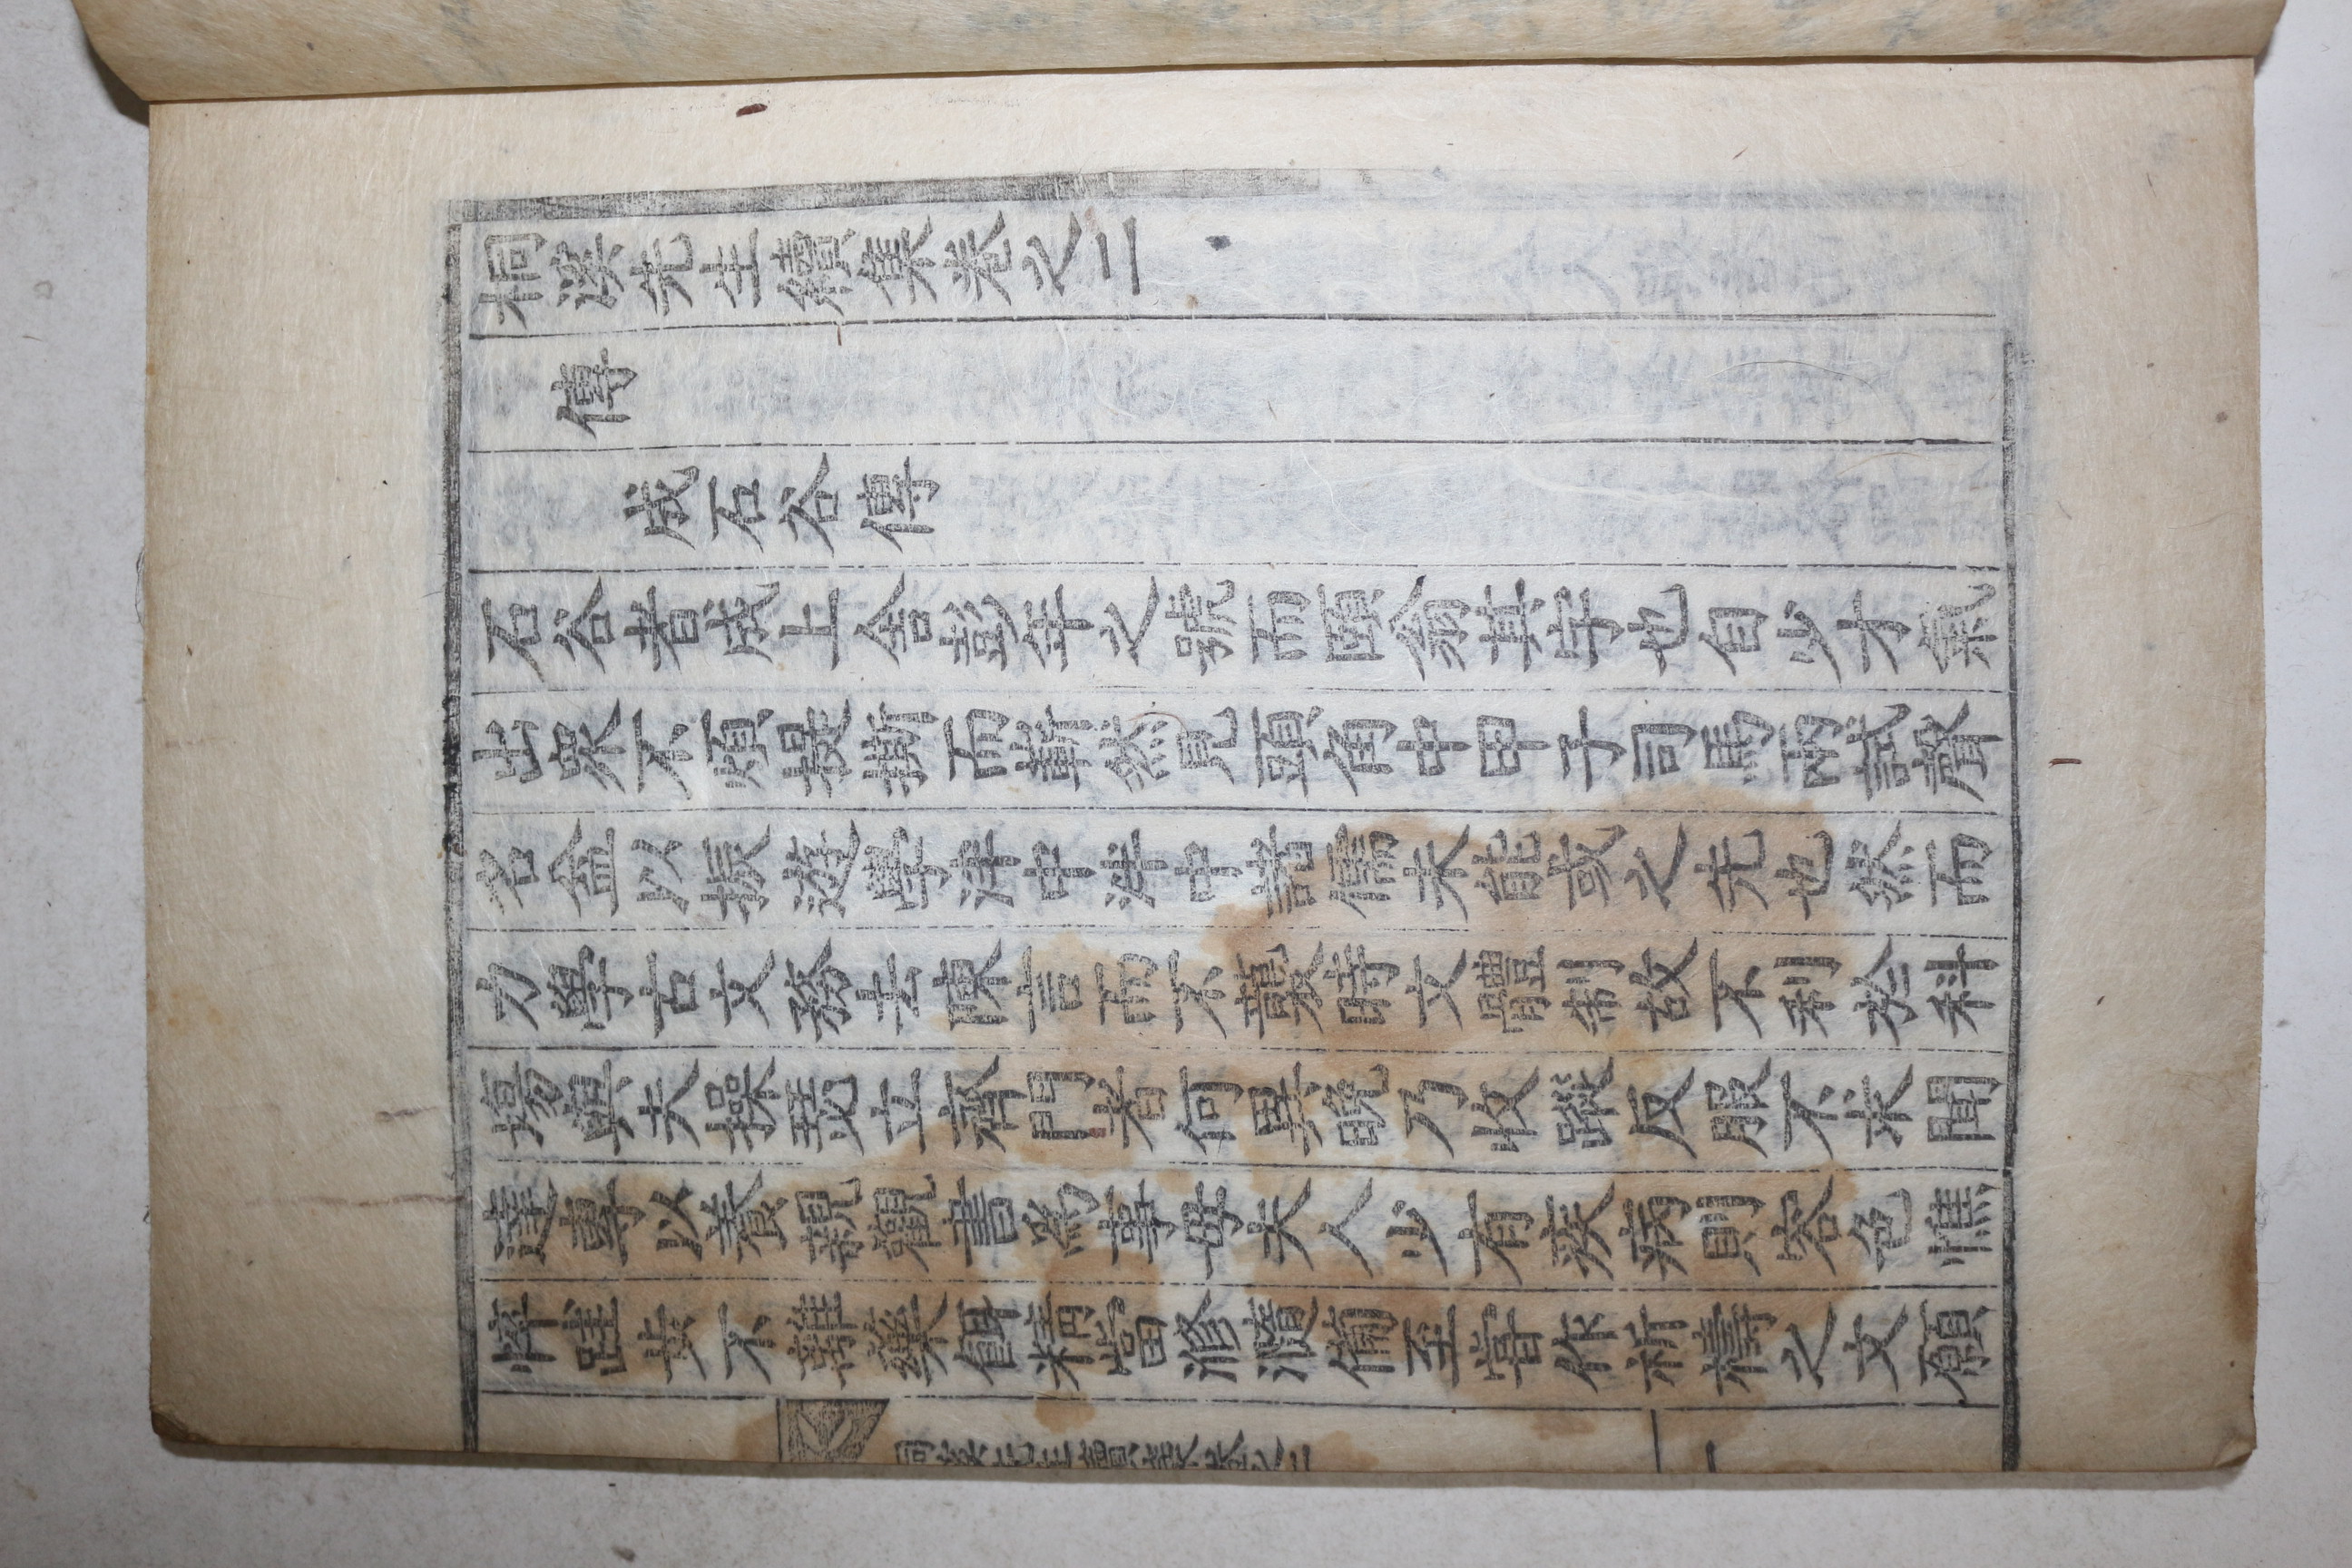 桐溪先生續集卷之二
傳
成石谷傳
石谷者成上舍彭年之號而頤翁其字也自少才氣
出衆不煩提撕而嶄然見頭角中甲子司馬兩試聲
名益以振遊學泮中泮中諸儒未能或之先也然而
力學古文務去陳言而不襲時文體制故不利於科
塲與夫操瑟立齊門者何異晩乃收蹤反服不求聞
達專以養親觀書爲事母夫人少有疾病則容色憔
悴跬步不離藥餌精當滫瀡備至嘗作祈禱之文願
桐溪先生續集卷之二
一